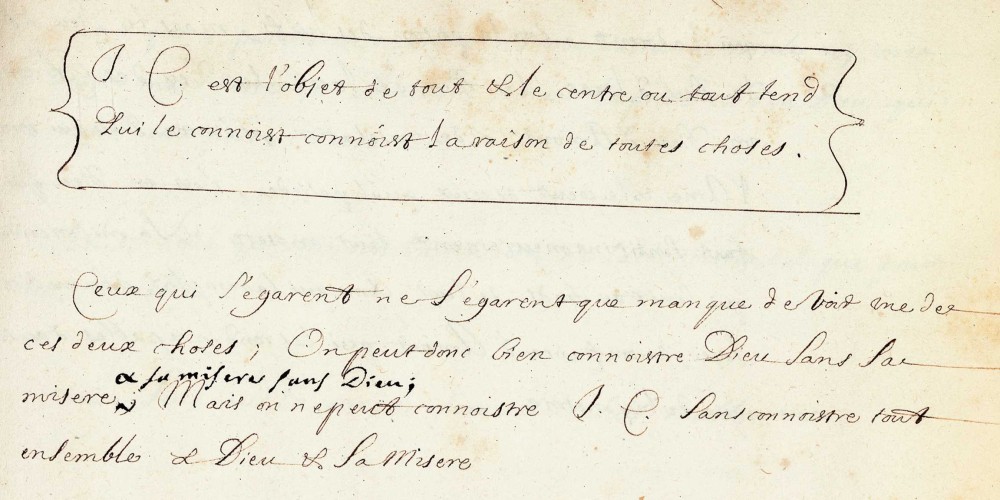 J. C. est l'objet de tout & le centre ou tout tend
Qui le connoist connoist la raison de toutes choses.
Ceux qui s'egarent ne s'égarent que manque de voir une de
ces deux choses ; On peut donc bien connoistre Dieu sans sa
& sa misere sans Dieu ;
misere ; Mais on ne peut connoistre J. C. sans connoistre tout
ensemble & Dieu & sa Misere